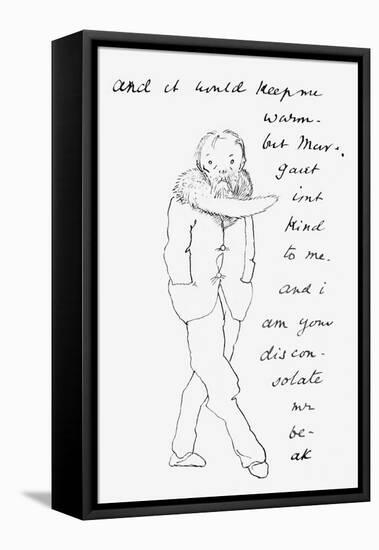 and it would keep me
warm.
but Mar-
garet
isnt
kind
to me.
and i
am your
discon-
solate
mr
be-
ak